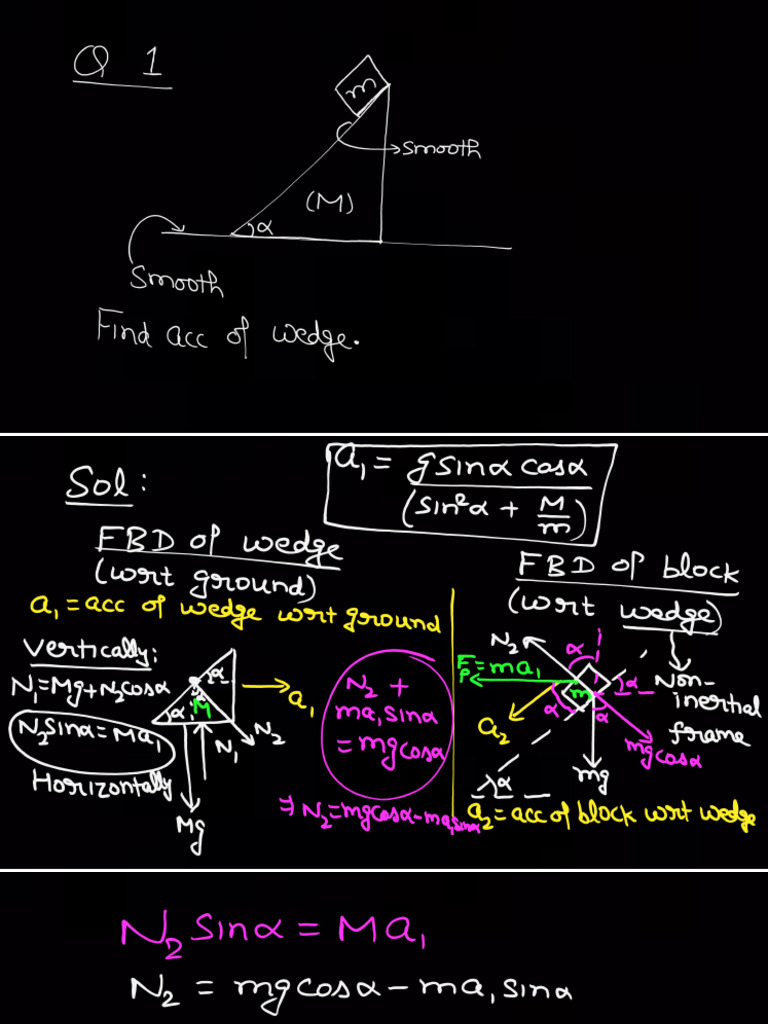 Q 1
m
→ Smooth
(M)
α
Smooth
Find acc of wedge.
Sol:
a₁ = gsinα cosα / (sin²α + M/m)
FBD of wedge
(wrt ground)
a₁ = acc of wedge wrt ground
Vertically:
N₁=Mg+N₂cosα
N₂sinα=Ma₁
Horizontally
α
α
M
a₁
N₂
N₁
Mg
N₂ +
ma₁sinα
=mgcosα
⇒ N₂=mgcosα-ma₁sinα
FBD of block
(wrt wedge)
Non-
inertial
frame
N₂
α
Fₚ=ma₁
m
α
α
α
a₂
mgcosα
mg
α
a₂=acc of block wrt wedge
N₂ sinα = Ma₁
N₂ = mgcosα - ma₁sinα